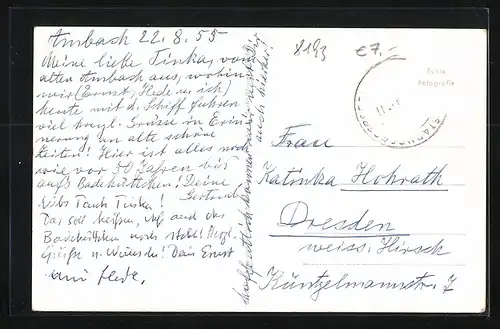 Ambach 22.8.55
Meine liebe Tinka, vom
alten Ambach aus, wohin
wir (Ernst, Hede u. ich)
heute mit d. Schiff fuhren
viel herzl. Grüsse in Erin-
nerung an alte schöne
Zeiten! Hier ist alles noch
wie vor 50 Jahren bis
aufs Badehüttchen! Deine
Gertrud
Tinka!
Das soll heißen, daß auch das
Badehüttchen noch steht! Herzl.
Grüße u. Wünsche! Dein Ernst
und Hede.
auch wieder!
8193
€7.-
Echte
Fotografie
Frau
Katinka Hohrath
Dresden
weiss. Hirsch
Küntzelmannstr. 7